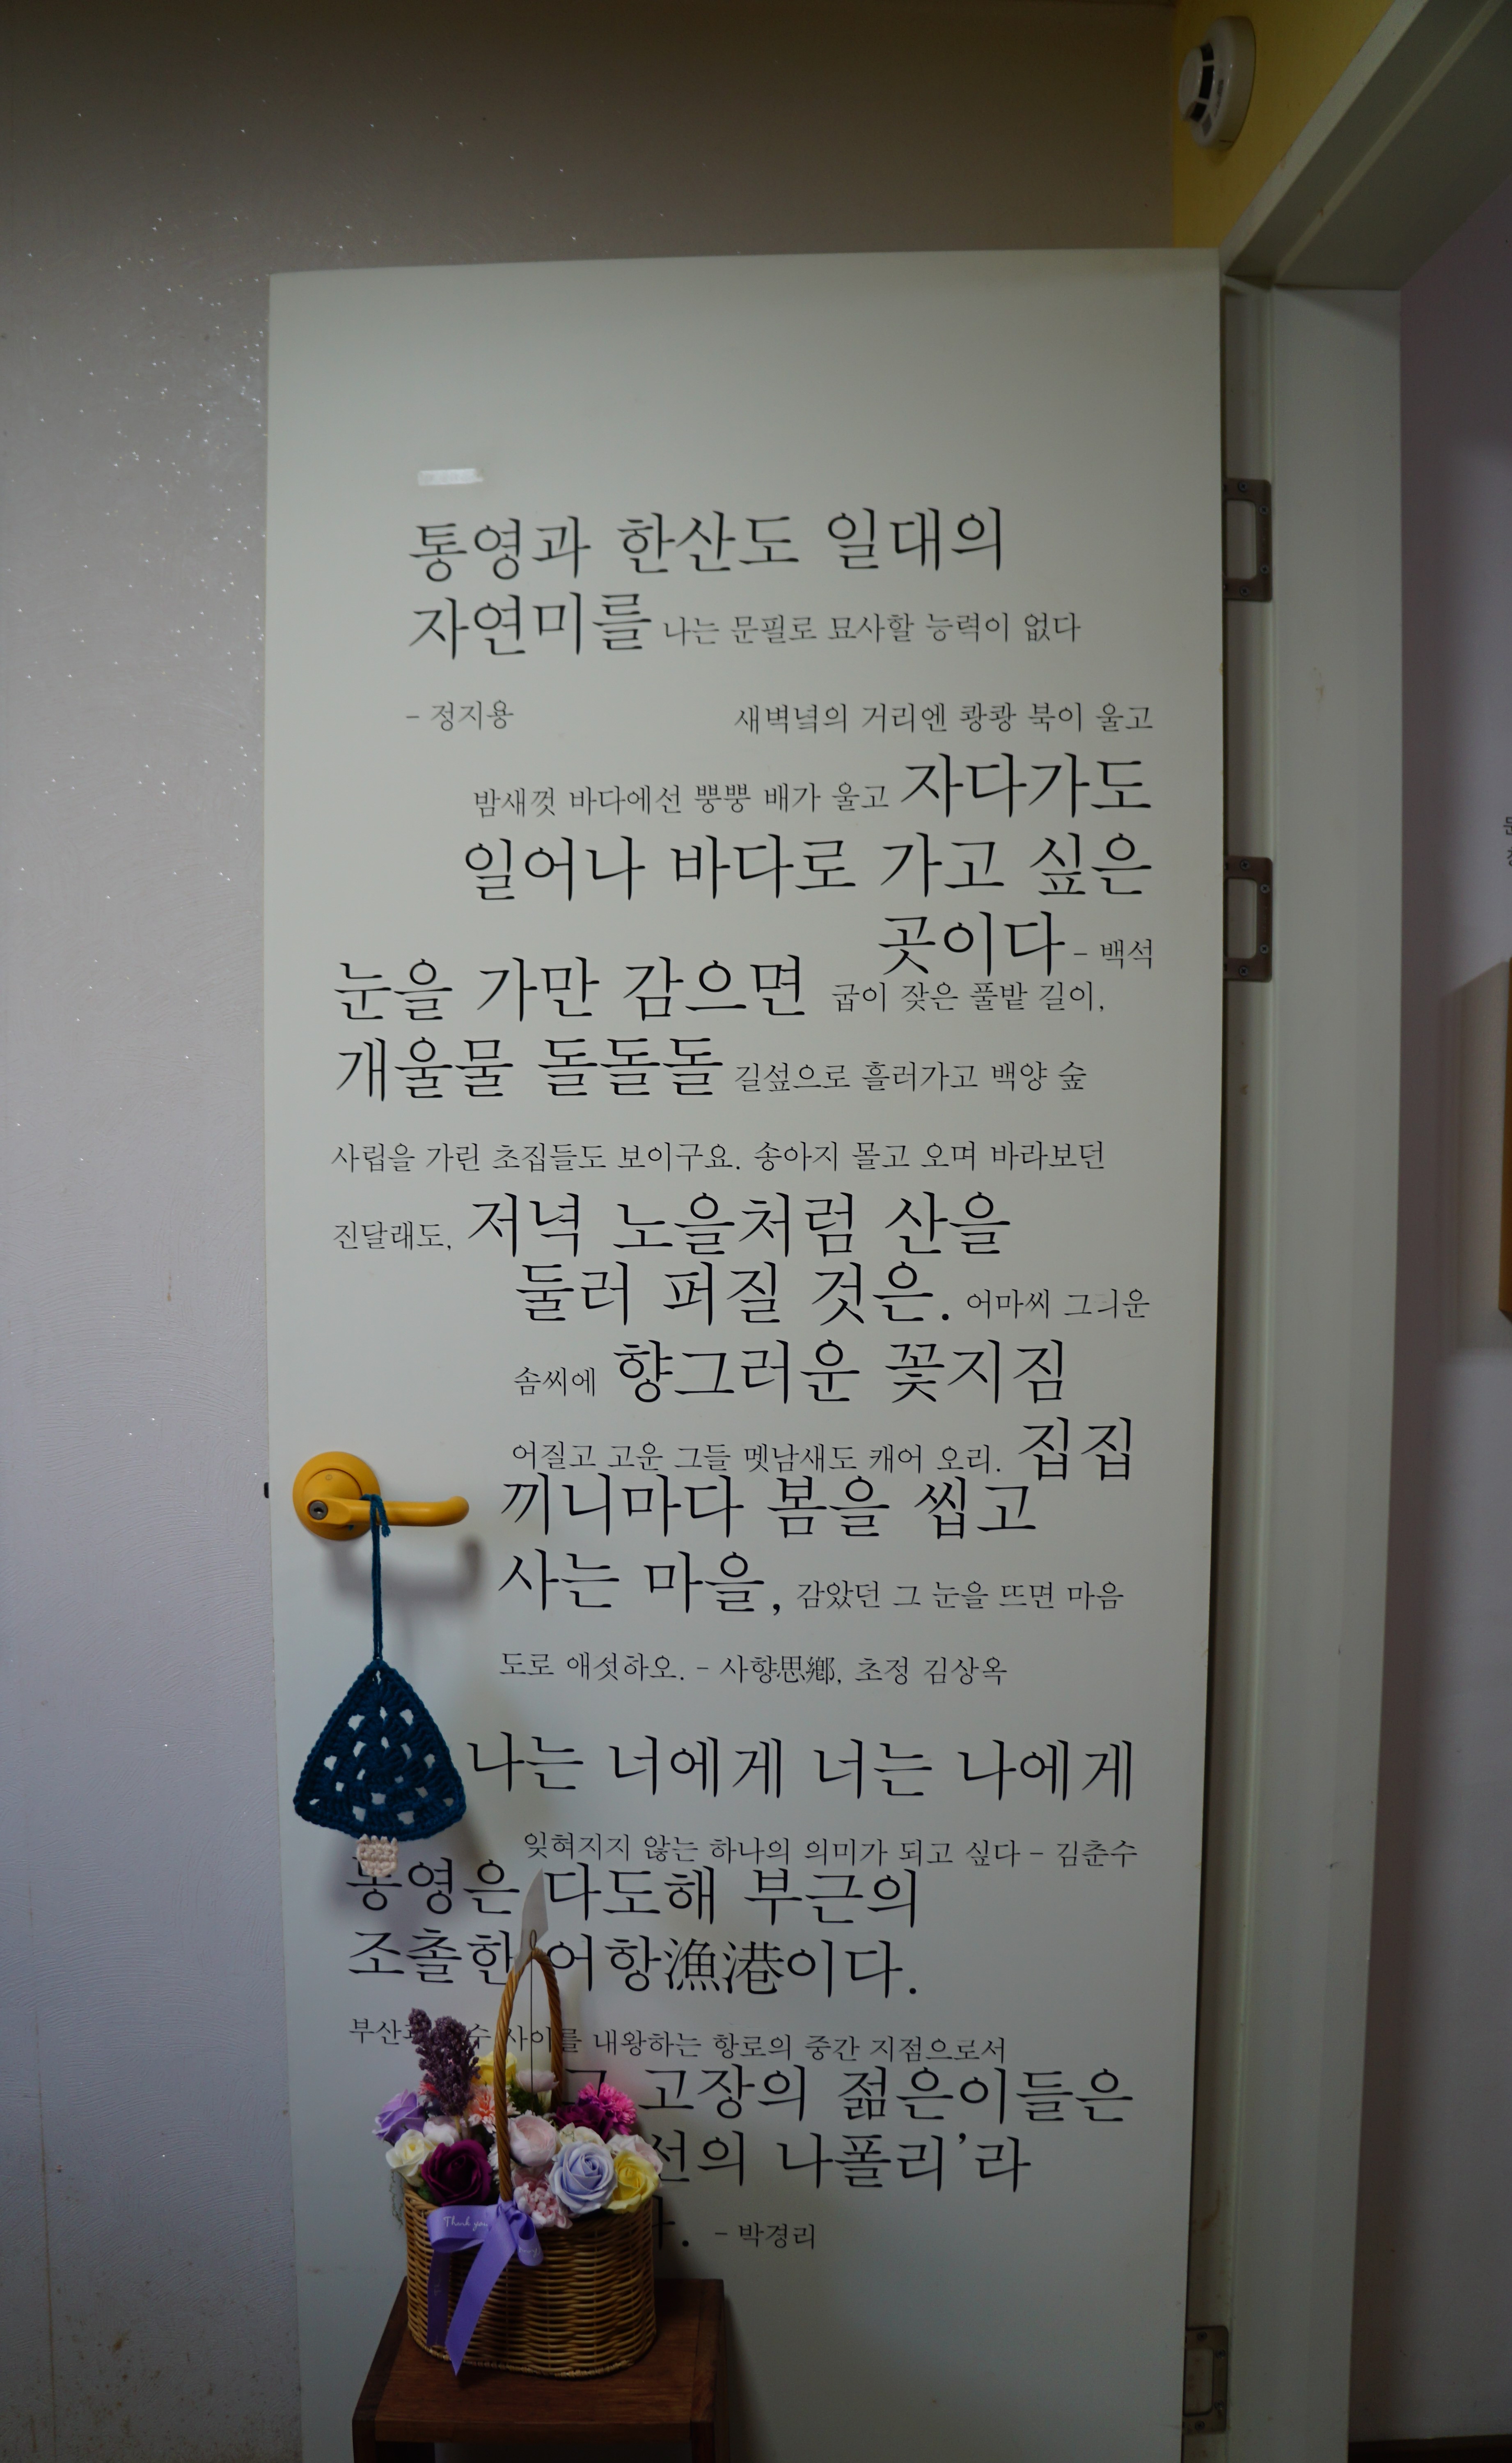 통영과 한산도 일대의
자연미를 나는 문필로 묘사할 능력이 없다
- 정지용
새벽녘의 거리엔 쾅쾅 북이 울고
밤새껏 바다에선 뿡뿡 배가 울고 자다가도
일어나 바다로 가고 싶은
곳이다 - 백석
눈을 가만 감으면 굽이 잦은 풀밭 길이,
개울물 돌돌돌 길섶으로 흘러가고 백양 숲
사립을 가린 초집들도 보이구요. 송아지 몰고 오며 바라보던
진달래도, 저녁 노을처럼 산을
둘러 퍼질 것은. 어마씨 그리운
솜씨에 향그러운 꽃지짐
어질고 고운 그들 멧남새도 캐어 오리. 집집
끼니마다 봄을 씹고
사는 마을, 감았던 그 눈을 뜨면 마음
도로 애섯하오. - 사향思鄕, 초정 김상옥
나는 너에게 너는 나에게
잊혀지지 않는 하나의 의미가 되고 싶다 - 김춘수
통영은 다도해 부근의
조촐한 어항漁港이다.
부산 사이를 내왕하는 항로의 중간 지점으로서
고장의 젊은이들은
나폴리’라
- 박경리
Thank you